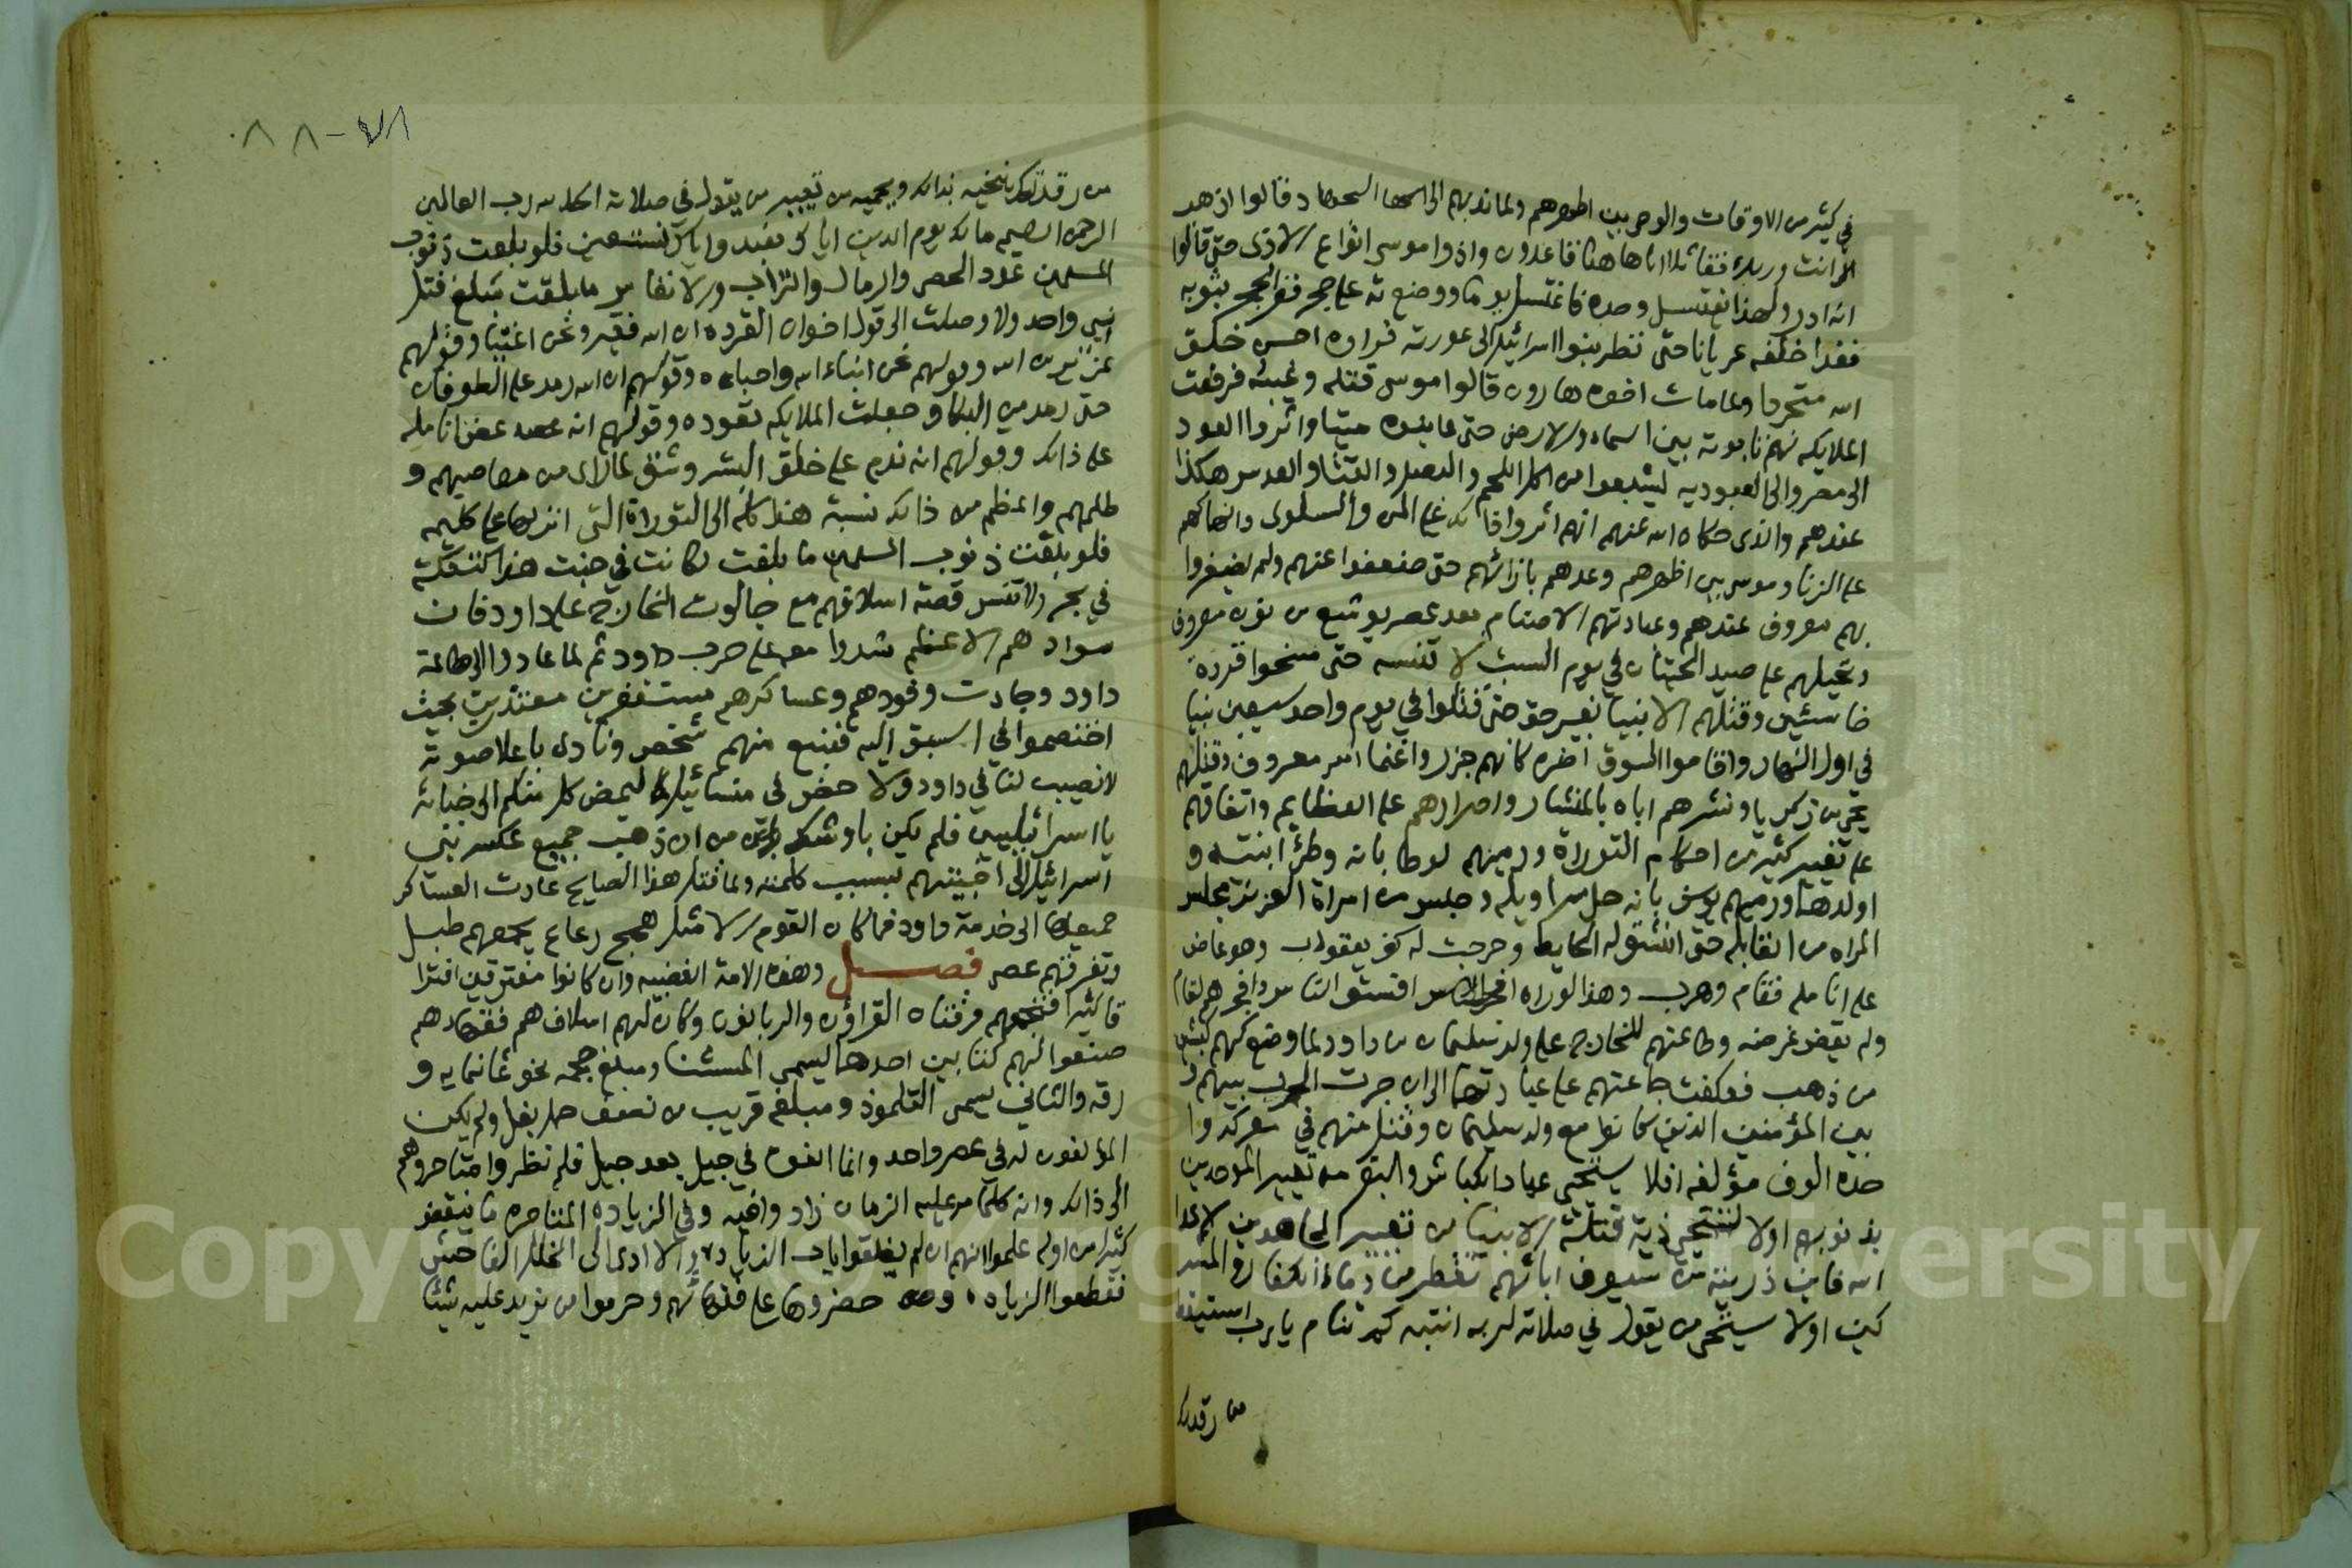 في كثير من الاوقات والوحي بين اظهرهم ولما ندبهم الى الجهاد قالوا اذهب
انت وربك فقاتلا انا هاهنا قاعدون واذوا موسى انواع الاذى حتى قالوا
انه ادر ولهذا يغتسل وحده فاغتسل يوما ووضع ثوبه على حجر ففر الحجر بثوبه
فعدا خلفه عريانا حتى نظر بنوا اسرائيل الى عورته فراوه احسن خلق
الله متجردا ولما مات اخوه هارون قالوا موسى قتله وغيبه فرفعت
الملايكه لهم تابوته بين السماء والارض حتى عاينوه ميتا واثروا العود
الى مصر والى العبوديه ليشبعوا من اكل اللحم والبصل والقثا والعدس هكذا
عندهم والذى حكاه الله عنهم انهم اثروا ذالك على المن والسلوى وانهماكهم
على الزنا وموسى بين اظهرهم وعدوهم بازائهم حتى ضعفوا عنهم ولم يظفروا
بهم معروف عندهم وعبادتهم الاصنام بعد عصر يوشع بن نون معروف
وتحيلهم على صيد الحيتان في يوم السبت لا تنسه حتى مسخوا قردة
خاسئين وقتلهم الانبيا بغير حق حتى قتلوا في يوم واحد سبعين نبيا
في اول النهار واقاموا السوق اخره كانهم جزروا غنما امر معروف وقتلهم
يحيى بن زكريا ونشرهم اباه بالمنشار واصرارهم على العظايم واتفاقهم
على تغيير كثير من احكام التوراة ورميهم لوطا بانه وطئ ابنتيه و
اولدهما ورميهم يوسف بانه حل سراويله وجلس من امراة العزيز مجلس
المراه من القابله حتى انشق له الحايط وخرجت له كف يعقوب وهو عاض
على انامله فقام وهرب وهذا لو راه افسق الناس وافجرهم لقام
ولم يقض غرضه وطاعتهم للخارج على ولد سليمان بن داود لما وضع لهم كبشين
من ذهب فعكفت جماعتهم على عبادتهما الى ان جرت الحرب بينهم و
بين المؤمنين الذين كانوا مع ولد سليمان وقتل منهم في معركة وا
حده الوف مؤلفه افلا يستحي عباد الكباش والبقر من تعيير الموحدين
بذنوبهم اولا تستحي ذرية قتلة الانبيا من تعيير المجاهدين لاعدا
الله فاين ذرية من سيوف ابائهم تقطر من دماء الكفار والمشر
كين اولا يستحى من يقول في صلاته لربه انتبه كم تنام يا رب استيقظ
من رقدتك
٨٨-٧٨
من رقدتك ينخيه بذالك ويحميه من تعيير من يقول في صلاته الحمد لله رب العالمين
الرحمن الرحيم مالك يوم الدين اياك نعبد واياك نستعين فلو بلغت ذنوب
المسلمين عدد الحصى والرمال والتراب والانفاس ما بلغت مبلغ قتل
نبي واحد ولا وصلت الى قول اخوان القرده ان الله فقير ونحن اغنيا وقولهم
عزير بن الله وقولهم نحن ابناء الله واحباءه وقولهم ان الله رمد على الطوفان
حتى رمد من البكا وجعلت الملايكه تعوده وقولهم انه عض انامله
على ذالك وقولهم انه ندم على خلق البشر وشق لما راى من معاصيهم و
ظلمهم واعظم من ذالك نسبة هذا كله الى التوراة التى انزلها على كليمه
فلو بلغت ذنوب المسلمين ما بلغت لكانت في جنب هذا كتفلة
في بحر ولا تنس قصة اسلافهم مع جالوت الخارج على داود فان
سوادهم الاعظم شدوا معه على حرب داود ثم لما عادوا الى طاعة
داود وجاءت وفودهم وعساكرهم مستغفرين معتذرين بحيث
اختصموا في السبق اليه فنبع منهم شخص ونادى باعلا صوته
لا نصيب لنا في داود ولا حظ في منسائيل ليمض كل منكم الى خبائه
يا اسرائيليين فلم يكن باوشك من ان ذهب جميع عسكر بني
اسرائيل الى اخبيتهم بسبب كلمته ولما قتل هذا الصايح عادت العساكر
جميعها الى خدمة داود فما كان القوم الا مثل همج رعاع يجمعهم طبل
وتفرقهم عصى فصل وهذه الامة الغضبيه وان كانوا مفترقين افترا
قا كثيرا فتجمعهم فرقتان القراؤن والربانون وكان لهم اسلاف هم فقهاءهم
صنعوا لهم كتابين احدهما يسمى المشنا ومبلغ حجمه نحو ثمانمايه و
رقه والثاني يسمى التلمود ومبلغه قريب من نصف حمل بغل ولم يكن
المؤلفون له في عصر واحد وانما الفوه في جيل بعد جيل فلم نظروا متاخروهم
الى ذالك وانه كلما مر عليه الزمان زاد وافيه وفي الزياده المتاخره ما ينقض
كثيرا من اوله علموا انهم ان لم يغلقوا باب الزياده والا ادى الى الخلل الفاحش
فقطعوا الزياده وحضروها على فقهائهم وحرموا من يزيد عليه شيئا
Copy © King Saud University